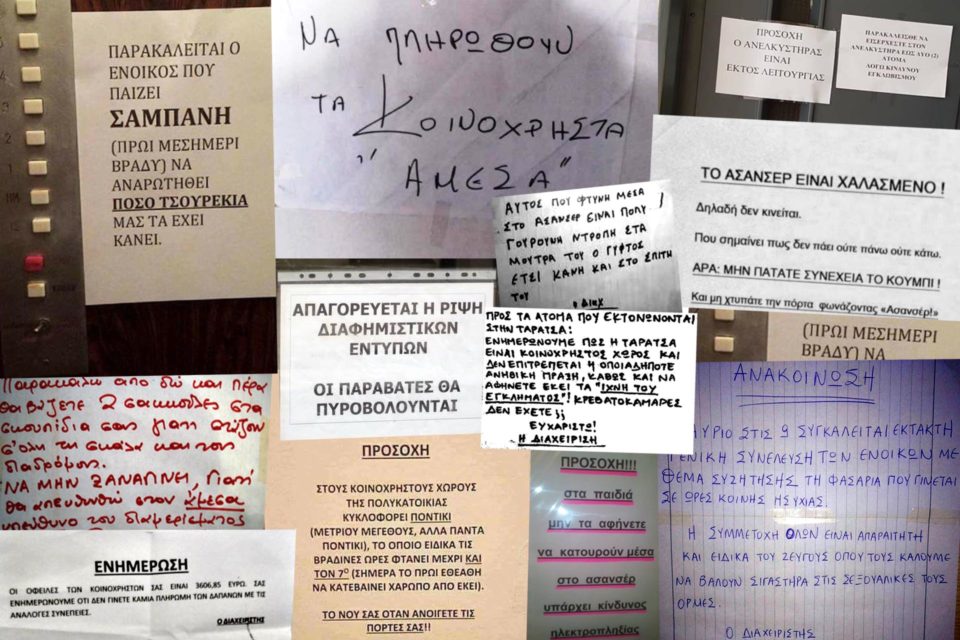 ΠΑΡΑΚΑΛΕΙΤΑΙ Ο
ΕΝΟΙΚΟΣ ΠΟΥ
ΠΑΙΖΕΙ
ΣΑΜΠΑΝΗ
(ΠΡΩΙ ΜΕΣΗΜΕΡΙ
ΒΡΑΔΥ) ΝΑ
ΑΝΑΡΩΤΗΘΕΙ
ΠΟΣΟ ΤΣΟΥΡΕΚΙΑ
ΜΑΣ ΤΑ ΕΧΕΙ
ΚΑΝΕΙ.
ΝΑ ΠΛΗΡΩΘΟΥΝ
ΤΑ ΚΟΙΝΟΧΡΗΣΤΑ
"ΑΜΕΣΑ"
ΠΡΟΣΟΧΗ
Ο ΑΝΕΛΚΥΣΤΗΡΑΣ
ΕΙΝΑΙ
ΕΚΤΟΣ ΛΕΙΤΟΥΡΓΙΑΣ
ΠΑΡΑΚΑΛΕΙΣΘΕ ΝΑ
ΕΙΣΕΡΧΕΣΤΕ ΣΤΟΝ
ΑΝΕΛΚΥΣΤΗΡΑ ΕΩΣ ΔΥΟ (2)
ΑΤΟΜΑ
ΛΟΓΩ ΚΙΝΔΥΝΟΥ
ΕΓΚΛΩΒΙΣΜΟΥ
ΤΟ ΑΣΑΝΣΕΡ ΕΙΝΑΙ ΧΑΛΑΣΜΕΝΟ !
Δηλαδή δεν κινείται.
Που σημαίνει πως δεν πάει ούτε πάνω ούτε κάτω.
ΑΡΑ: ΜΗΝ ΠΑΤΑΤΕ ΣΥΝΕΧΕΙΑ ΤΟ ΚΟΥΜΠΙ !
Και μη χτυπάτε την πόρτα φωνάζοντας «Ασανσέρ!»
ΑΥΤΟΣ ΠΟΥ ΦΤΥΝΗ ΜΕΣΑ
ΣΤΟ ΑΣΑΝΣΕΡ ΕΙΝΑΙ ΠΟΛΥ
ΓΟΥΡΟΥΝΗ ΝΤΡΟΠΗ ΣΤΑ
ΜΟΥΤΡΑ ΤΟΥ Ο ΓΥΦΤΟΣ
ΕΤΣΙ ΚΑΝΗ ΚΑΙ ΣΤΟ ΣΠΙΤΗ
ΤΟΥ
Ο ΔΙΑΧ
ΑΠΑΓΟΡΕΥΕΤΑΙ Η ΡΙΨΗ
ΔΙΑΦΗΜΙΣΤΙΚΩΝ
ΕΝΤΥΠΩΝ
ΟΙ ΠΑΡΑΒΑΤΕΣ ΘΑ
ΠΥΡΟΒΟΛΟΥΝΤΑΙ
ΠΡΟΣ ΤΑ ΑΤΟΜΑ ΠΟΥ ΕΚΤΟΝΩΝΟΝΤΑΙ
ΣΤΗΝ ΤΑΡΑΤΣΑ:
ΕΝΗΜΕΡΩΝΟΥΜΕ ΠΩΣ Η ΤΑΡΑΤΣΑ
ΕΙΝΑΙ ΚΟΙΝΟΧΡΗΣΤΟΣ ΧΩΡΟΣ ΚΑΙ
ΔΕΝ ΕΠΙΤΡΕΠΕΤΑΙ Η ΟΠΟΙΑΔΗΠΟΤΕ
ΑΝΗΘΙΚΗ ΠΡΑΞΗ, ΚΑΘΩΣ ΚΑΙ ΝΑ
ΑΦΗΝΕΤΕ ΕΚΕΙ ΤΑ "ΙΧΝΗ ΤΟΥ
ΕΓΚΛΗΜΑΤΟΣ"! ΚΡΕΒΑΤΟΚΑΜΑΡΕΣ
ΔΕΝ ΕΧΕΤΕ;;
ΕΥΧΑΡΙΣΤΩ!
Η ΔΙΑΧΕΙΡΙΣΗ
(ΠΡΩΙ ΜΕΣΗΜΕΡΙ
ΒΡΑΔΥ) ΝΑ
Παρακαλώ από δω και πέρα
θα βάζετε 2 σακκούλες στα
σκουπίδια σας γιατί στάζουν
σ'όλη τη σκάλα και τον
διαδρόμον.
ΝΑ ΜΗΝ ΞΑΝΑΓΙΝΕΙ, Γιατί
θα απευθυνθώ στον άμεσα
υπεύθυνο του διαμερίσματος
ΠΡΟΣΟΧΗ
ΣΤΟΥΣ ΚΟΙΝΟΧΡΗΣΤΟΥΣ ΧΩΡΟΥΣ
ΤΗΣ ΠΟΛΥΚΑΤΟΙΚΙΑΣ
ΚΥΚΛΟΦΟΡΕΙ ΠΟΝΤΙΚΙ
(ΜΕΤΡΙΟΥ ΜΕΓΕΘΟΥΣ, ΑΛΛΑ ΠΑΝΤΑ
ΠΟΝΤΙΚΙ), ΤΟ ΟΠΟΙΟ ΕΙΔΙΚΑ ΤΙΣ
ΒΡΑΔΙΝΕΣ ΩΡΕΣ ΦΤΑΝΕΙ ΜΕΧΡΙ ΚΑΙ
ΤΟΝ 7º (ΣΗΜΕΡΑ ΤΟ ΠΡΩΙ ΕΘΕΑΘΗ
ΝΑ ΚΑΤΕΒΑΙΝΕΙ ΧΑΡΩΠΟ ΑΠΟ ΕΚΕΙ).
ΤΟ ΝΟΥ ΣΑΣ ΟΤΑΝ ΑΝΟΙΓΕΤΕ ΤΙΣ
ΠΟΡΤΕΣ ΣΑΣ!!
ΠΡΟΣΟΧΗ!!!
στα παιδιά
μην τα αφήνετε
να κατουρούν μέσα
στο ασανσέρ
υπάρχει κίνδυνος
ηλεκτροπληξίας
ΑΝΑΚΟΙΝΩΣΗ
ΑΥΡΙΟ ΣΤΙΣ 9 ΣΥΓΚΑΛΕΙΤΑΙ ΕΚΤΑΚΤΗ
ΓΕΝΙΚΗ ΣΥΝΕΛΕΥΣΗ ΤΩΝ ΕΝΟΙΚΩΝ ΜΕ
ΘΕΜΑ ΣΥΖΗΤΗΣΗΣ ΤΗ ΦΑΣΑΡΙΑ ΠΟΥ ΓΙΝΕΤΑΙ
ΣΕ ΩΡΕΣ ΚΟΙΝΗΣ ΗΣΥΧΙΑΣ.
Η ΣΥΜΜΕΤΟΧΗ ΟΛΩΝ ΕΙΝΑΙ ΑΠΑΡΑΙΤΗΤΗ
ΚΑΙ ΕΙΔΙΚΑ ΤΟΥ ΖΕΥΓΟΥΣ ΟΠΟΥ ΤΟΥΣ ΚΑΛΟΥΜΕ
ΝΑ ΒΑΛΟΥΝ ΣΙΓΑΣΤΗΡΑ ΣΤΙΣ ΣΕΞΟΥΑΛΙΚΕΣ ΤΟΥΣ
ΟΡΜΕΣ.
Ο ΔΙΑΧΕΙΡΙΣΤΗΣ
ΕΝΗΜΕΡΩΣΗ
ΟΙ ΟΦΕΙΛΕΣ ΤΩΝ ΚΟΙΝΟΧΡΗΣΤΩΝ ΣΑΣ ΕΙΝΑΙ 3606,85 ΕΥΡΩ. ΣΑΣ
ΕΝΗΜΕΡΩΝΟΥΜΕ ΟΤΙ ΔΕΝ ΓΙΝΕΤΕ ΚΑΜΙΑ ΠΛΗΡΩΜΗ ΤΩΝ ΔΑΠΑΝΩΝ ΜΕ ΤΙΣ
ΑΝΑΛΟΓΕΣ ΣΥΝΕΠΕΙΕΣ.
Ο ΔΙΑΧΕΙΡΙΣΤΗΣ